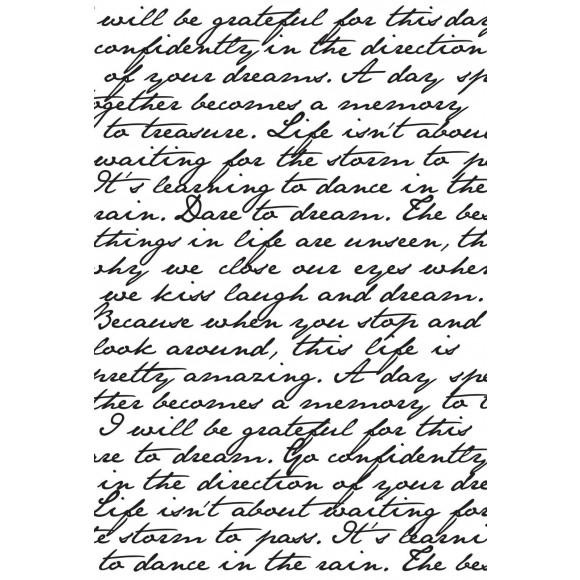 will be grateful for this day
confidently in the direction
of your dreams. A day sp
ogether becomes a memory
to treasure. Life isn't abou
waiting for the storm to p
It's learning to dance in the
rain. Dare to dream. The bes
things in life are unseen, th
why we close our eyes when
we kiss laugh and dream.
Because when you stop and
look around, this life is
pretty amazing. A day spe
ther becomes a memory to
I will be grateful for this
re to dream. Go confidently
in the direction of your dre
Life isn't about waiting for
e storm to pass. It's learni
to dance in the rain. The bes